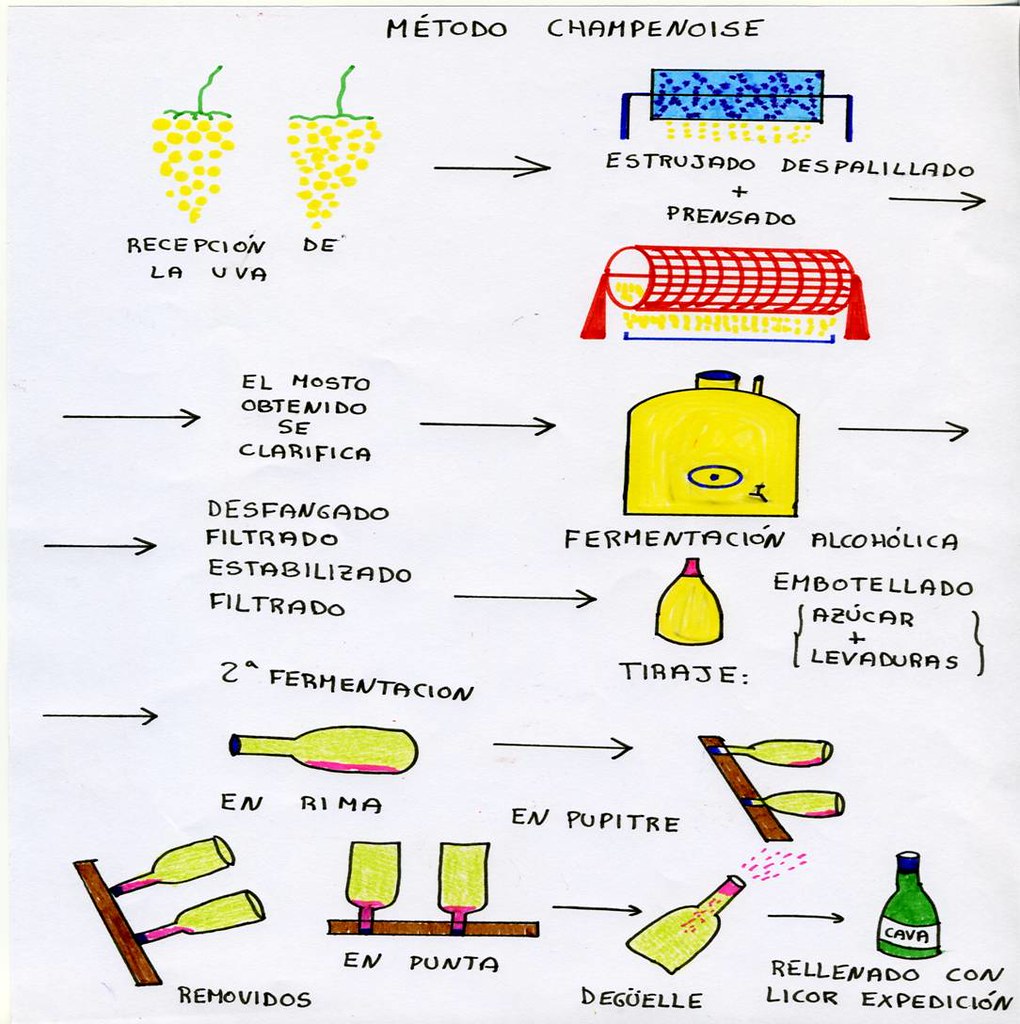 MÉTODO CHAMPENOISE
RECEPCIÓN DE
LA UVA
ESTRUJADO DESPALILLADO
+
PRENSADO
EL MOSTO
OBTENIDO
SE
CLARIFICA
FERMENTACIÓN ALCOHÓLICA
DESFANGADO
FILTRADO
ESTABILIZADO
FILTRADO
TIRAJE:
EMBOTELLADO
AZÚCAR
+
LEVADURAS
2ª FERMENTACION
EN RIMA
EN PUPITRE
REMOVIDOS
EN PUNTA
DEGÜELLE
CAVA
RELLENADO CON
LICOR EXPEDICIÓN